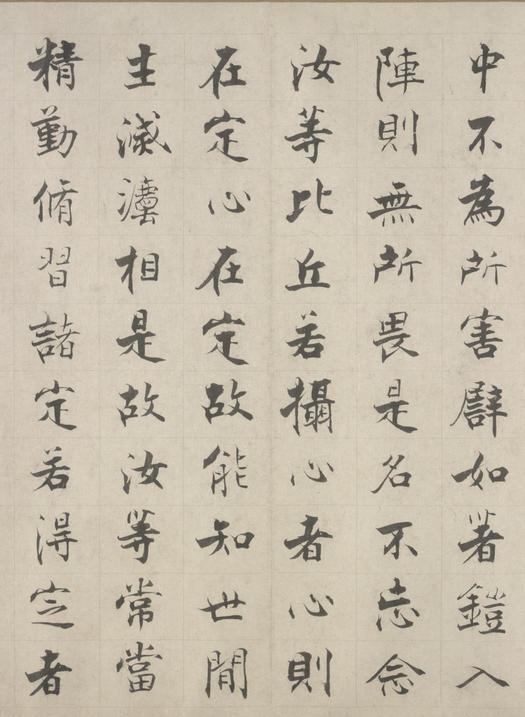 中不為所害譬如著鎧入
陣則無所畏是名不忘念
汝等比丘若攝心者心則
在定心在定故能知世閒
生滅灋相是故汝等常當
精勤脩習諸定若得定者